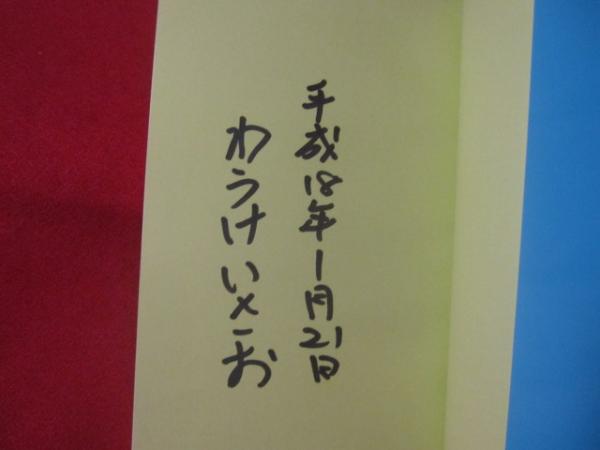 平成18年1月21日
わうけいさお